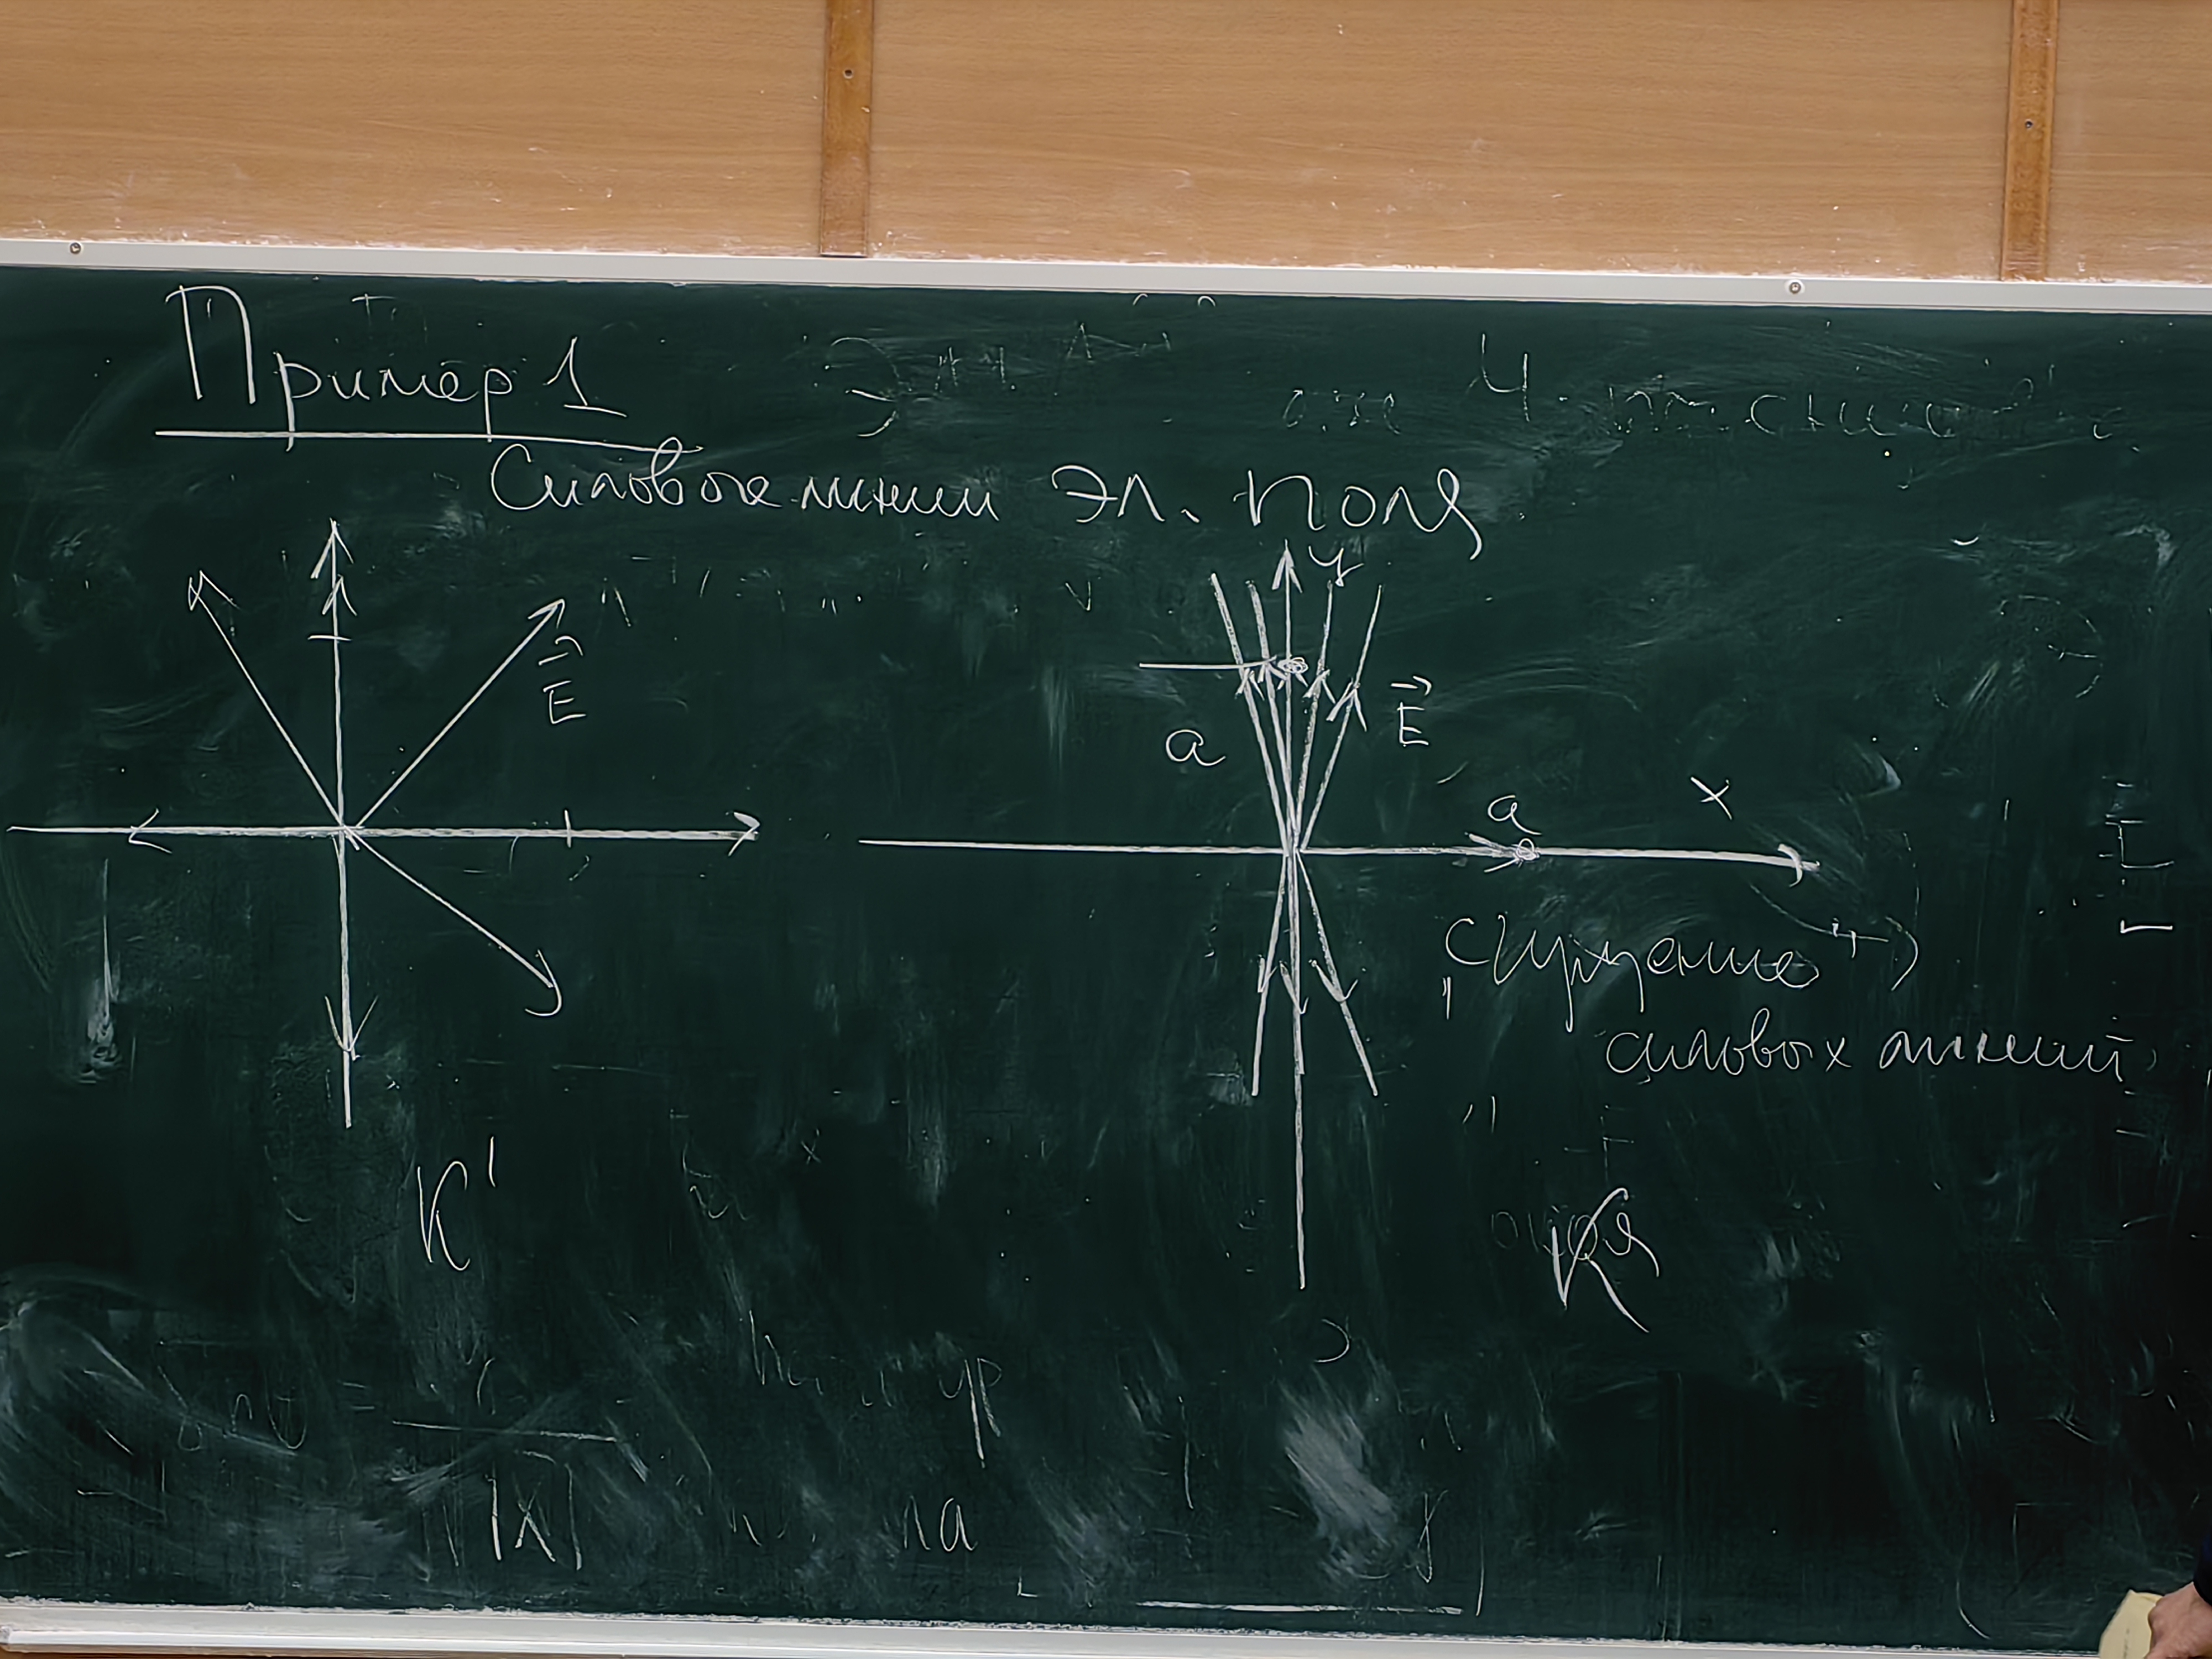 Пример 1
Силовые линии Эл. поля
y
E
a
E
a
x
"Сгущение"
силовых линий
K'
K